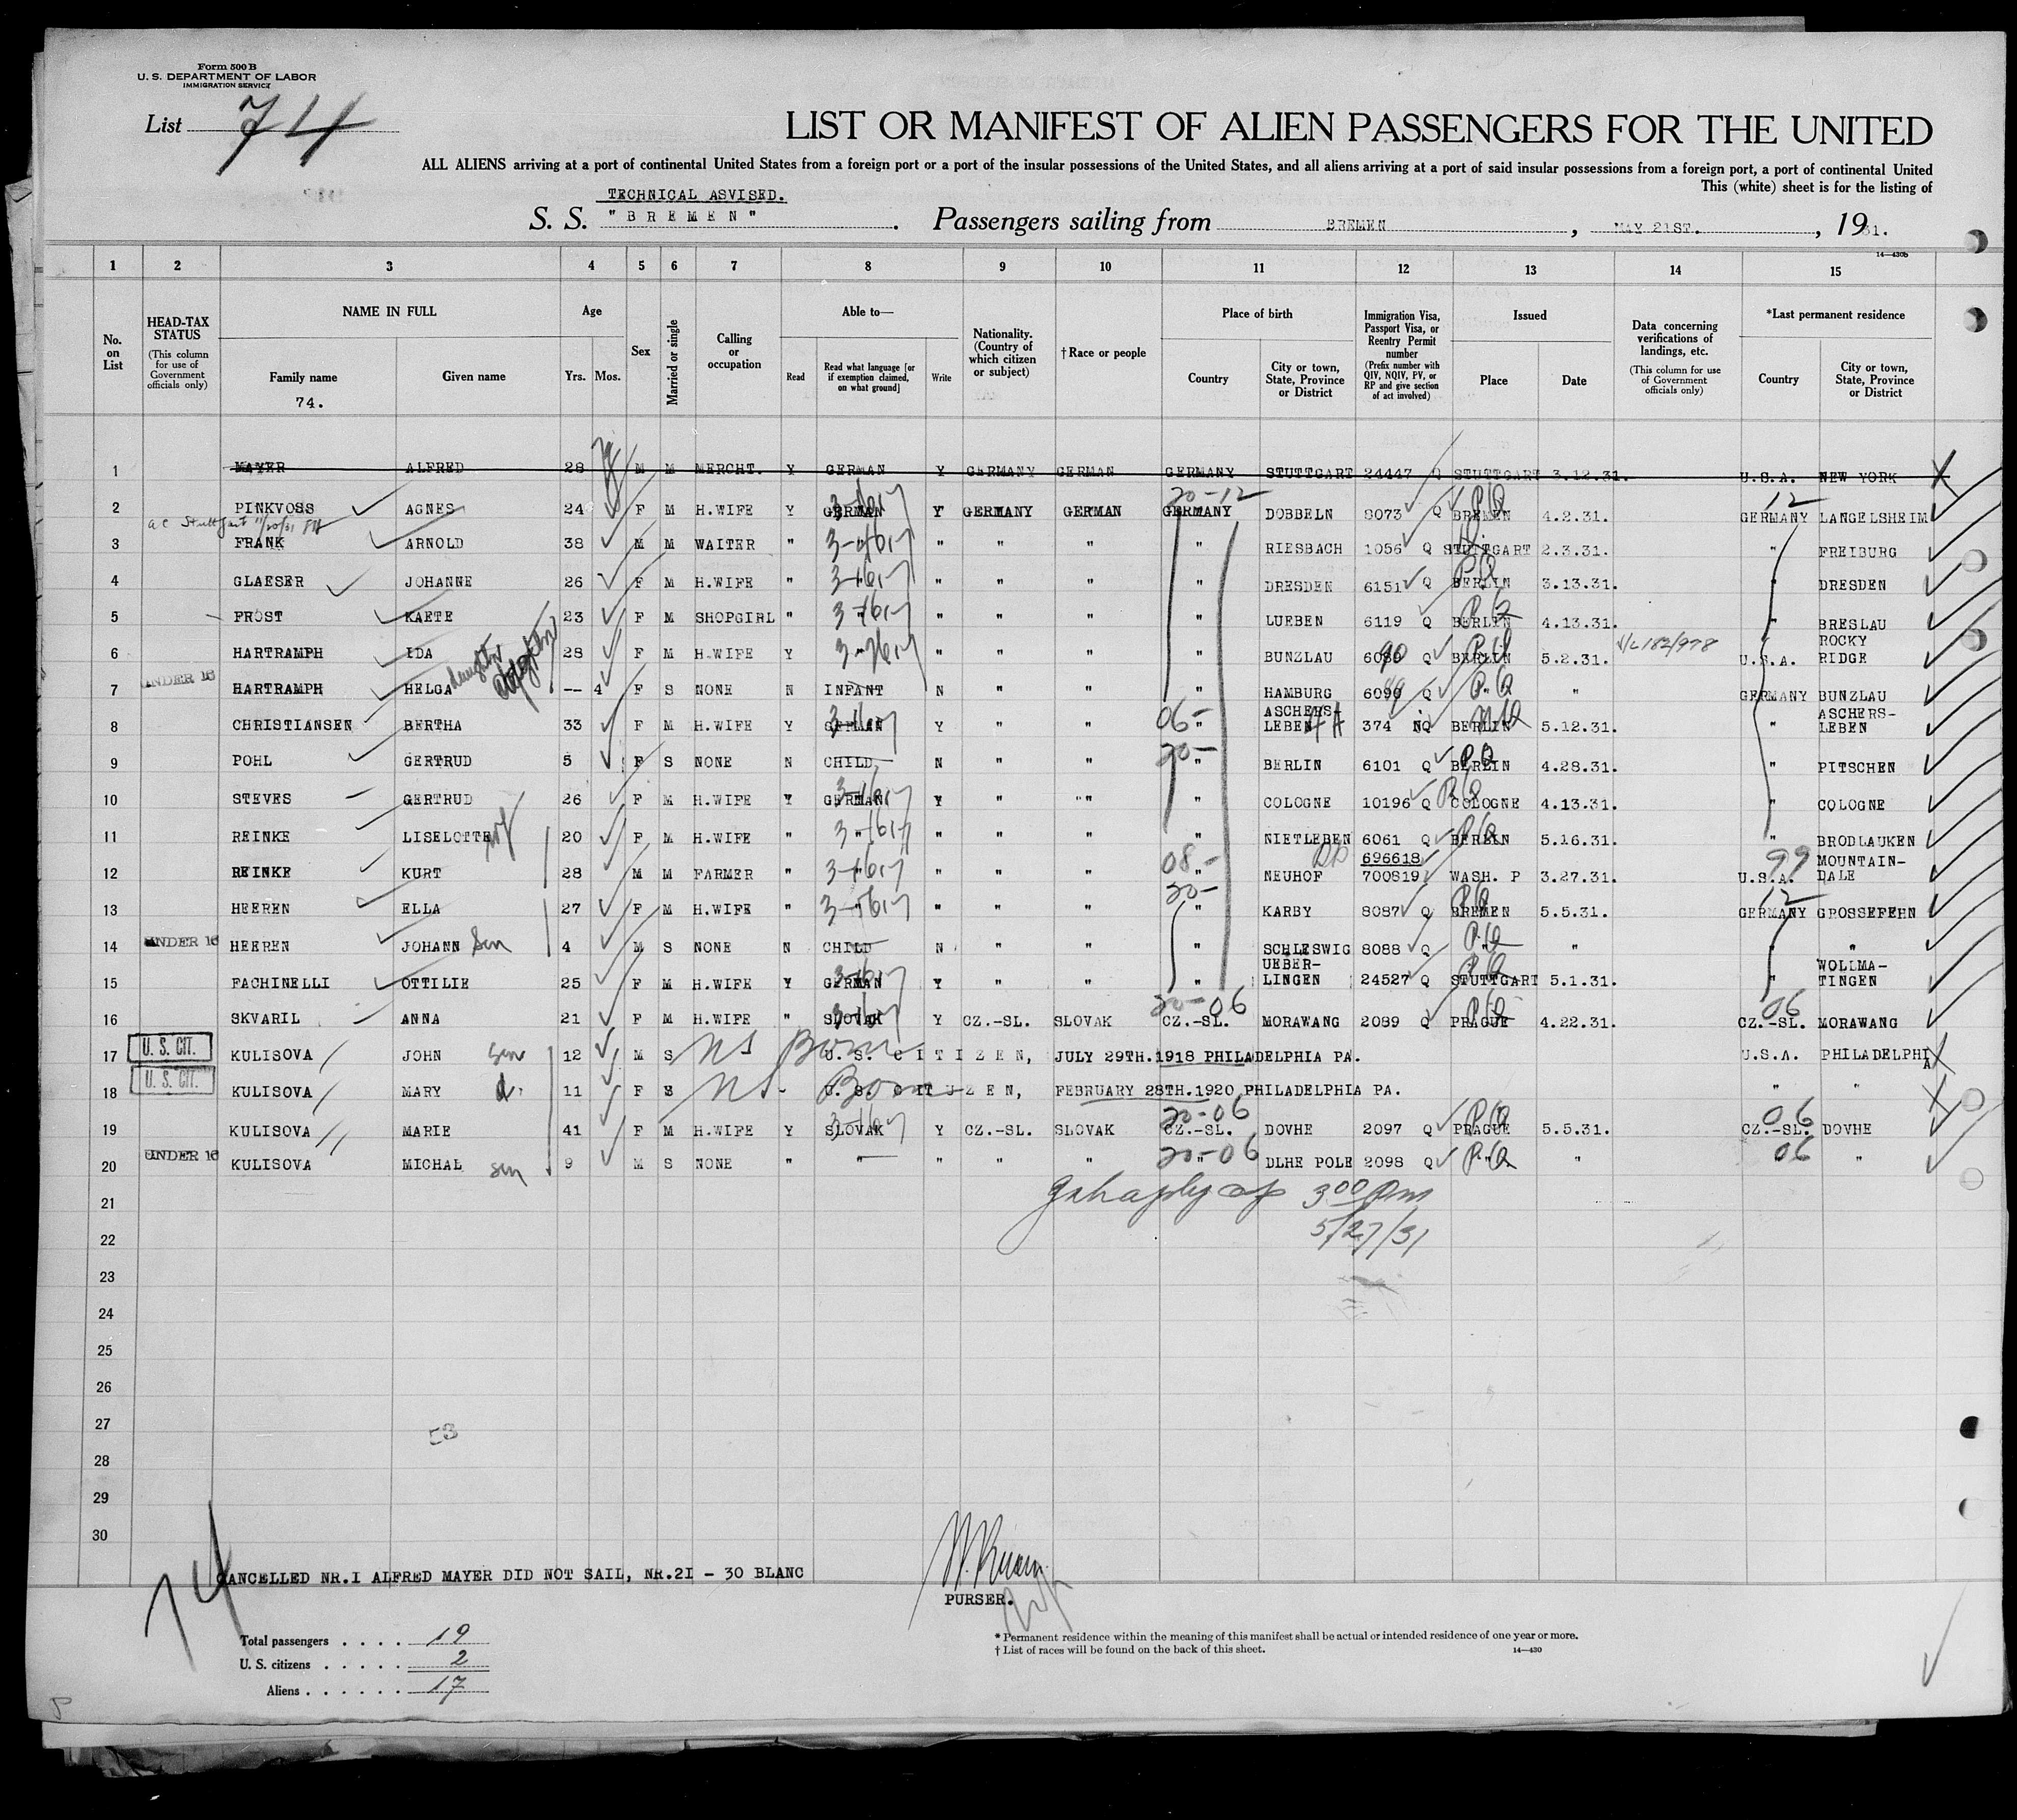 Form 500 B
U. S. DEPARTMENT OF LABOR
IMMIGRATION SERVICE
List 74
LIST OR MANIFEST OF ALIEN PASSENGERS FOR THE UNITED
ALL ALIENS arriving at a port of continental United States from a foreign port or a port of the insular possessions of the United States, and all aliens arriving at a port of said insular possessions from a foreign port, a port of continental United
This (white) sheet is for the listing of
TECHNICAL ASVISED.
S. S. "BREMEN". Passengers sailing from BREMEN, MAY 21ST., 1931.
14—430b
1 2 3 4 5 6 7 8 9 10 11 12 13 14 15
No. on List
HEAD-TAX STATUS (This column for use of Government officials only)
NAME IN FULL
Family name
Given name
74.
Age
Yrs. Mos.
Sex
Married or single
Calling or occupation
Able to—
Read
Read what language [or if exemption claimed, on what ground]
Write
Nationality. (Country of which citizen or subject)
†Race or people
Place of birth
Country
City or town, State, Province or District
Immigration Visa, Passport Visa, or Reentry Permit number (Prefix number with QIV, NQIV, PV, or RP and give section of act involved)
Issued
Place
Date
Data concerning verifications of landings, etc. (This column for use of Government officials only)
*Last permanent residence
Country
City or town, State, Province or District
1 MAYER ALFRED 28 M M MERCHT. Y GERMAN Y GERMANY GERMAN GERMANY STUTTGART 24447 Q STUTTGART 3.12.31. U.S.A. NEW YORK
20-12 PQ 12
2 PINKVOSS AGNES 24 F M H.WIFE Y GERMAN Y GERMANY GERMAN GERMANY DOBBELN 8073 Q BREMEN 4.2.31. GERMANY LANGELSHEIM
3 FRANK ARNOLD 38 M M WAITER " " " " " RIESBACH 1056 Q STUTTGART 2.3.31. " FREIBURG
4 GLAESER JOHANNE 26 F M H.WIFE " " " " " DRESDEN 6151 Q BERLIN 3.13.31. " DRESDEN
5 FROST KAETE 23 F M SHOPGIRL " " " " " LUEBEN 6119 Q BERLIN 4.13.31. " BRESLAU
6 HARTRAMPH IDA 28 F M H.WIFE Y " " " " BUNZLAU 6090 Q BERLIN 5.2.31. U.S.A. ROCKY RIDGE
UNDER 16
7 HARTRAMPH HELGA daughter -- 4 F S NONE N INFANT N " " " HAMBURG 6090 Q " " GERMANY BUNZLAU
8 CHRISTIANSEN BERTHA 33 F M H.WIFE Y GERMAN Y " " 06- " ASCHERS-LEBEN 374 NQ BERLIN 5.12.31. " ASCHERS-LEBEN
9 POHL GERTRUD 5 F S NONE N CHILD N " " 20- " BERLIN 6101 Q BERLIN 4.28.31. " PITSCHEN
10 STEVES GERTRUD 26 F M H.WIFE Y GERMAN Y " " " COLOGNE 10196 Q COLOGNE 4.13.31. " COLOGNE
11 REINKE LISELOTTE wf 20 F M H.WIFE " " " " " " NIETLEBEN 6061 Q BERLIN 5.16.31. " BRODLAUKEN
12 REINKE KURT 28 M M FARMER " " " " " 08- " NEUHOF 696618 700819 WASH. P 3.27.31. 99 U.S.A. MOUNTAIN-DALE
13 HEEREN ELLA 27 F M H.WIFE " " " " " 20- " KARBY 8087 Q BREMEN 5.5.31. 12 GERMANY GROSSEFEHN
UNDER 16
14 HEEREN JOHANN Son 4 M S NONE N CHILD N " " " SCHLESWIG 8088 Q PQ " " "
15 FACHINELLI OTTILIE 25 F M H.WIFE Y GERMAN Y " " " UEBER-LINGEN 24527 Q STUTTGART 5.1.31. " WOLLMA-TINGEN
16 SKVARIL ANNA 21 F M H.WIFE " SLOVAK Y CZ.-SL. SLOVAK 20-06 CZ.-SL. MORAWANG 2089 Q PRAGUE 4.22.31. 06 CZ.-SL. MORAWANG
U. S. CIT.
17 KULISOVA JOHN Son 12 M S NS Born U.S. CITIZEN, JULY 29TH.1918 PHILADELPHIA PA. U.S.A. PHILADELPHIA
U. S. CIT.
18 KULISOVA MARY d. 11 F S NS- Born U.S. CITIZEN, FEBRUARY 28TH.1920 PHILADELPHIA PA. " "
19 KULISOVA MARIE 41 F M H.WIFE Y SLOVAK Y CZ.-SL. SLOVAK 20-06 CZ.-SL. DOVHE 2097 Q PRAGUE 5.5.31. 06 CZ.-SL. DOVHE
UNDER 16
20 KULISOVA MICHAL son 9 M S NONE " " " " 20-06 DLHE POLE 2098 Q PQ " 06 "
21
3 00 Pm
22
5/27/31
23
24
25
26
27
28
29
30
74
CANCELLED NR.I ALFRED MAYER DID NOT SAIL, NR.2I - 30 BLANC
PURSER.
Total passengers . . . . 19
U. S. citizens . . . . . 2
Aliens . . . . . . 17
* Permanent residence within the meaning of this manifest shall be actual or intended residence of one year or more.
† List of races will be found on the back of this sheet.
14—430